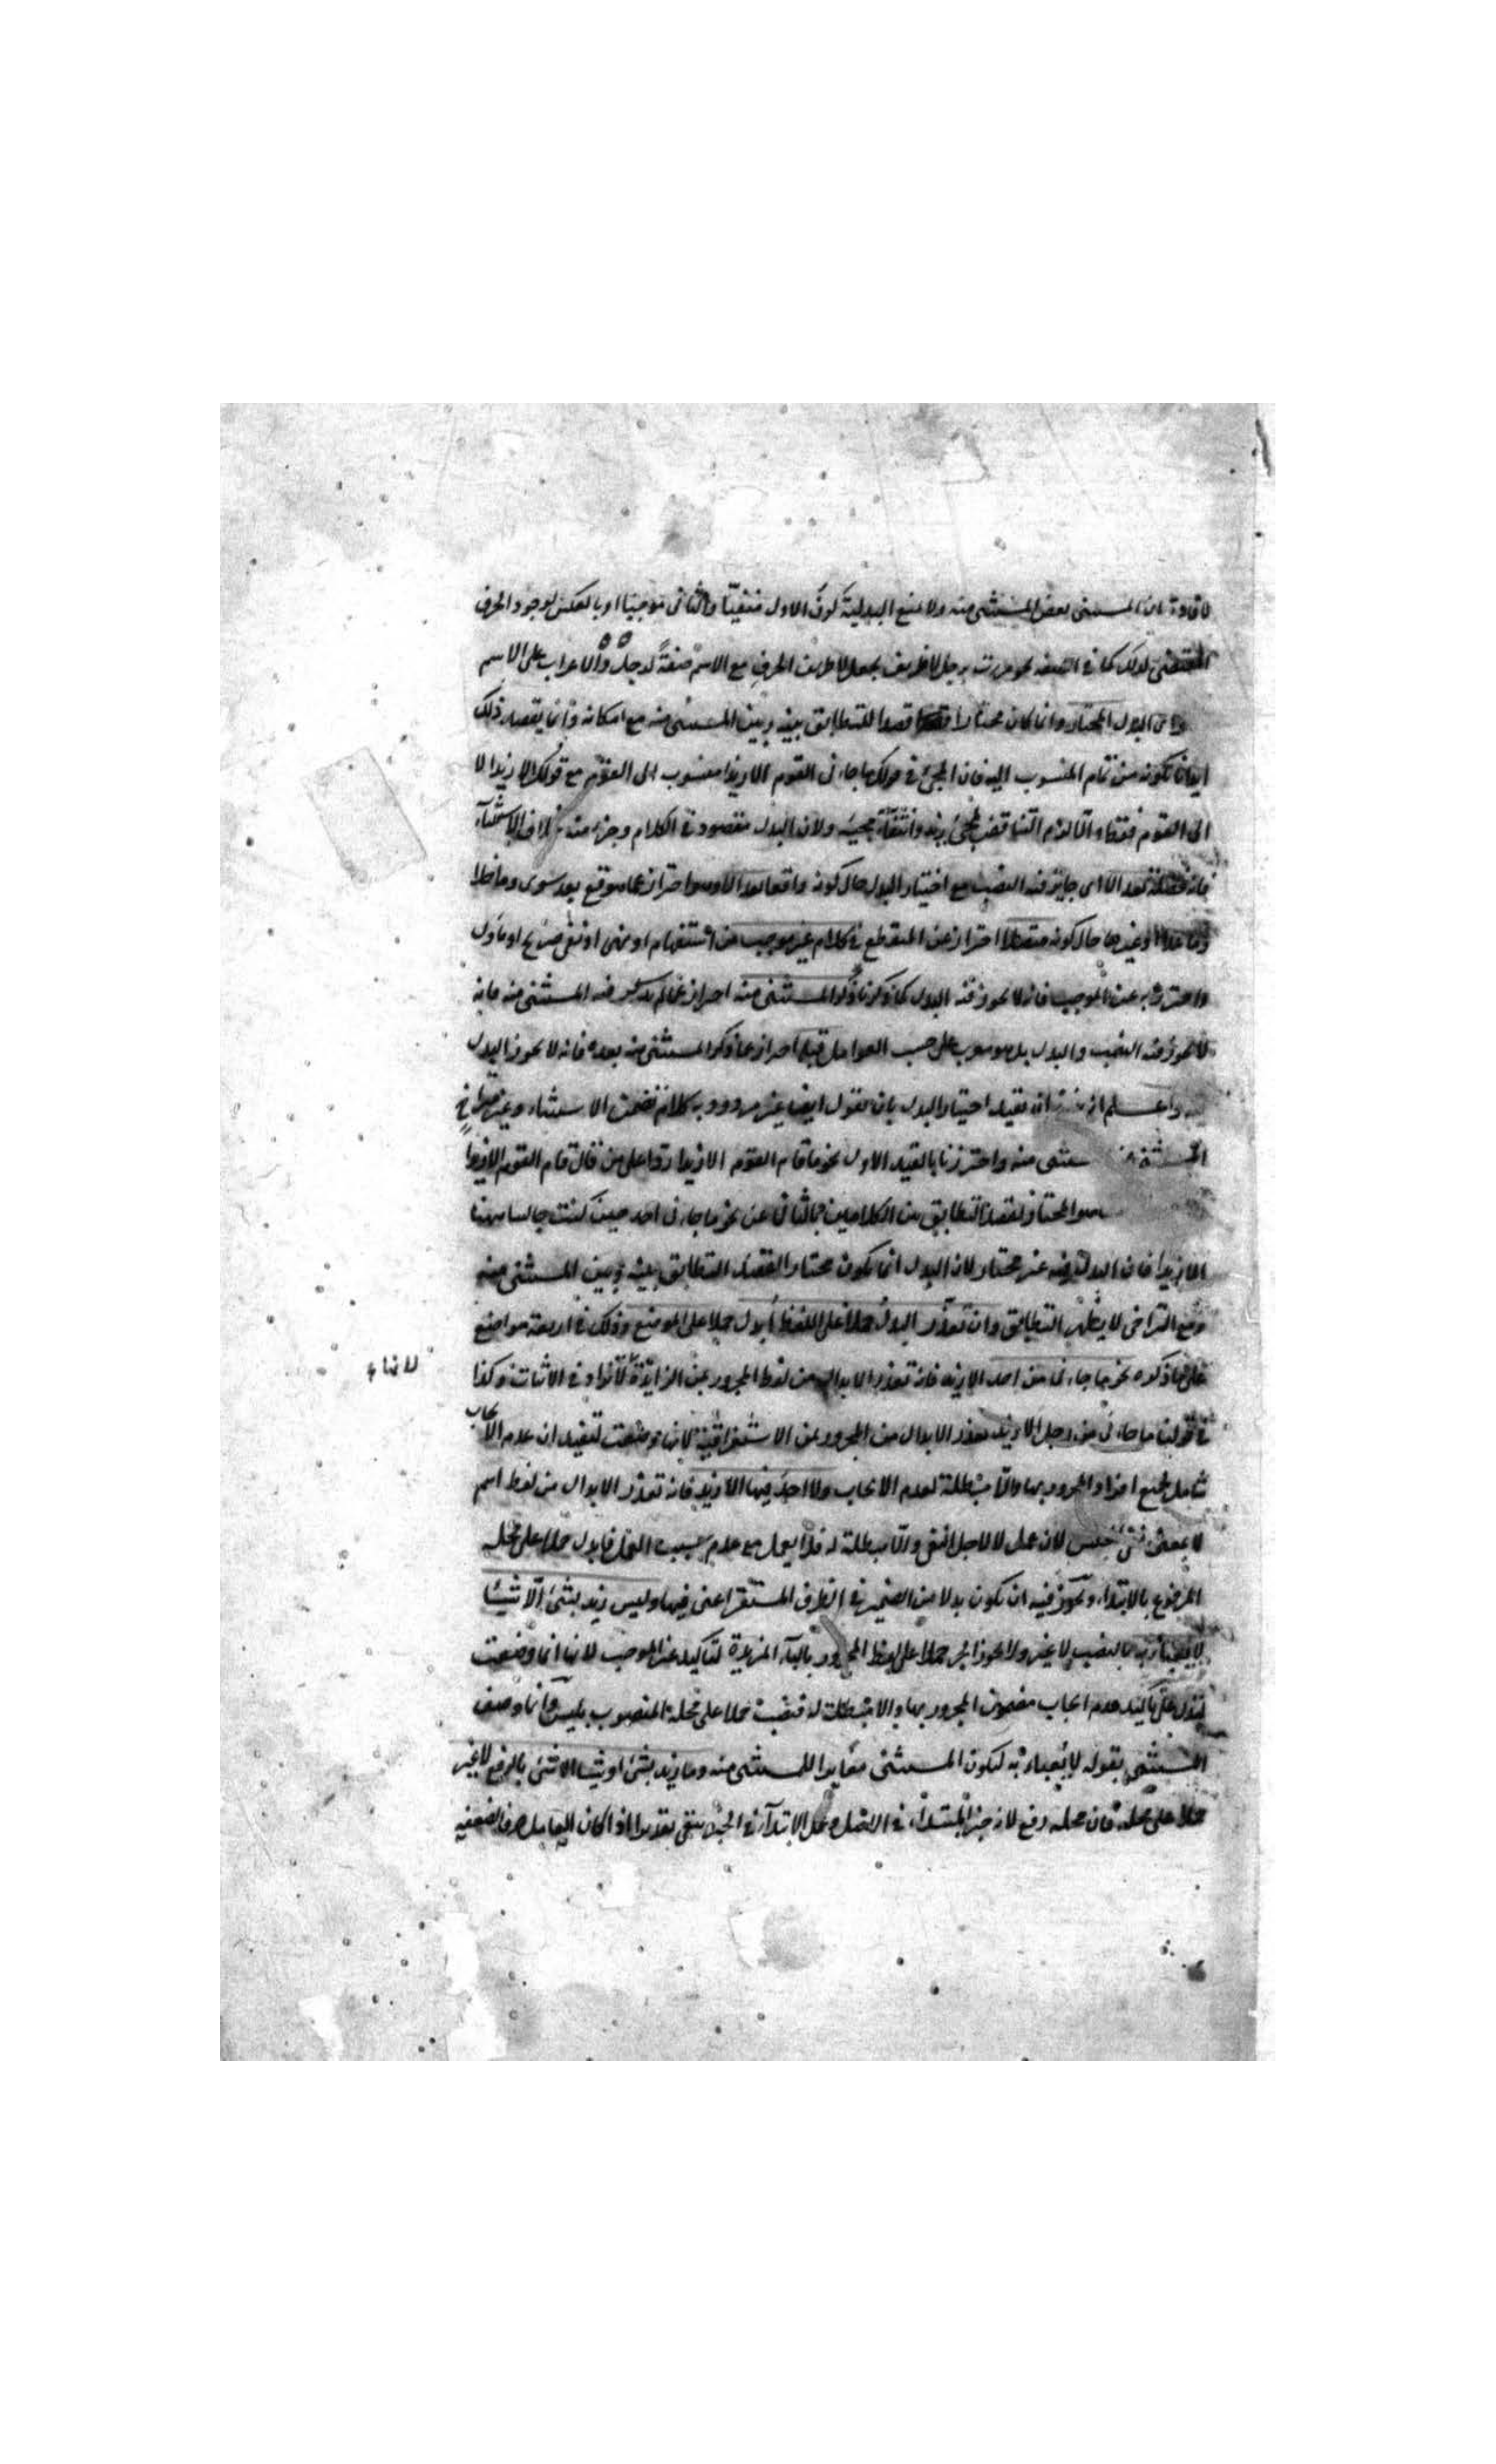 لافادته ان المستثنى بعض المستثنى منه ولا يمنع البدلية كون الاول منفيّا والثانى موجبا او بالعكس لوجود الحرف
المقتضى لذلك كما فى الصفة نحو مررت برجل لا ظريف بجعل لا ظريف الحرف مع الاسم صفةً لرجل والاعراب على الاسم
البدل المختار وانما كان مختارا قصدا للتطابق بينه وبين المستثنى منه مع امكانه وانما يقصد ذلك
ايذانا بكونه من تمام المنسوب اليه فان المجئ فى قولك ما جاءنى القوم الا زيدا منسوب الى القوم مع قولك الا زيدا لا
الى القوم فقط والا لزم التناقض بمجئ زيد وانتفاء مجيئه ولان البدل مقصود فى الكلام وجزء منه بخلاف الاستثناء
فانه فضلة بعد الا اى جايز فيه النصب مع اختيار البدل حال كونه واقعا بعد الا وهو احتراز عما وقع بعد سوى وما خلا
وما عدا وغيرها حال كونه متصلا احتراز عن المنقطع فى كلام غير موجب من استفهام او نهى او نفى صريح او مأول
واحترز به عن الموجب فانه لا يجوز فيه البدل كما ذكرنا ذكر المستثنى منه احتراز عما لم يذكر فيه المستثنى منه فانه
لا يجوز فيه النصب والبدل بل هو معرب على حسب العوامل قبله احتراز عما ذكر المستثنى منه بعده فانه لا يجوز البدل
واعلم ان يقيد اختيار البدل بان نقول ايضا غير مردود به كلام تضمن الاستثناء وغير متراخ
المستثنى منه واحترزنا بالقيد الاول نحو ما قام القوم الا زيدا ردا على من قال قام القوم الا زيدا
هو المختار لقصد التطابق بين الكلامين وبالثانى عن نحو ما جاءنى احد حين كنت جالسا ههنا
الا زيدا فان البدلية فيه غير مختار لان البدل انما يكون مختارا لقصد التطابق بينه وبين المستثنى منه
ومع التراخى لا يظهر التطابق وان تعذّر البدل حملا على اللفظ أبدل حملا على الموضع وذلك فى اربعة مواضع
على ما ذكره نحو ما جاءنى من احد الا زيد فانه تعذر الابدال من لفظ المجرور بمن الزايدة لانها لا تزاد فى الاثبات وكذا
فى قولنا ما جاءنى من رجل الا زيد تعذر الابدال من المجرور بمن الاستغراقية لانها وضعت لتفيد ان عدم الايجاب
شامل لجميع افراد المجرور بها والا مبطلة لعدم الايجاب ولا احد فيها الا زيد فانه تعذر الابدال من لفظ اسم
لا بمعنى نفى جنس لان عمل لا لاجل النفى والا مبطلة له فلا يعمل مع عدم سبب العمل فابدل حملا على محله
المرفوع بالابتداء ويجوز فيه ان يكون بدلا من الضمير فى الظرف المستقر اعنى فيها وليس زيد بشئ الّا شيئا
لا يعبأ به بالنصب لا غير ولا يجوز الجر حملا على لفظ المجرور بالباء المزيدة لتأكيد غير الموجب لانها انما وضعت
لتدل على تأكيد عدم ايجاب مضمون المجرور بها والا مبطلة له فنصبت حملا على محله المنصوب بليس وانما وصف
المستثنى بقوله لا يُعبأ به ليكون المستثنى مغايرا للمستثنى منه وما زيد بشئ او شيئا الا شئ بالرفع لا غير
حملا على محله فان محله رفع لانه خبر المبتدأ فى الاصل وعمل الابتداء فى الخبر ينتفى تقديرا اذا كان العامل حرفا لضعفه